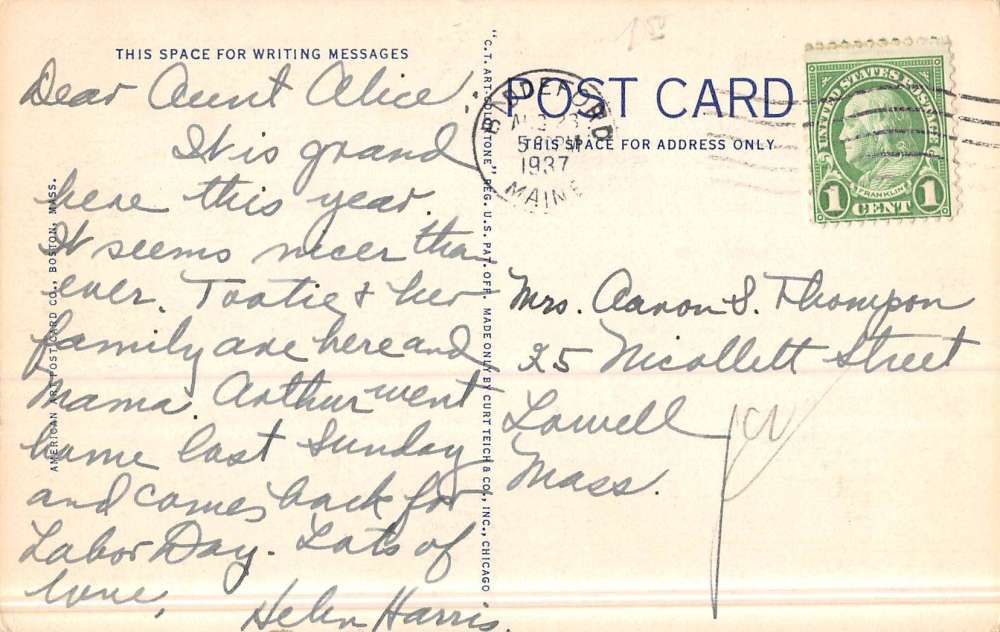 THIS SPACE FOR WRITING MESSAGES
Dear Aunt Alice,
It is grand
here this year.
It seems nicer than
ever. Tootie & her
family are here and
Mama. Arthur went
home last Sunday
and comes back for
Labor Day. Lots of
love,
Helen Harris.
AMERICAN ART POST CARD CO., BOSTON, MASS.
"C.T. ART-COLORTONE" REG. U.S. PAT. OFF. MADE ONLY BY CURT TEICH & CO., INC., CHICAGO
POST CARD
THIS SPACE FOR ADDRESS ONLY
BIDDEFORD
AUG 23
PM
1937
MAINE
UNITED STATES POSTAGE
FRANKLIN
1 CENT 1
Mrs. Aaron S. Thompson
25 Nicollett Street
Lowell
Mass.